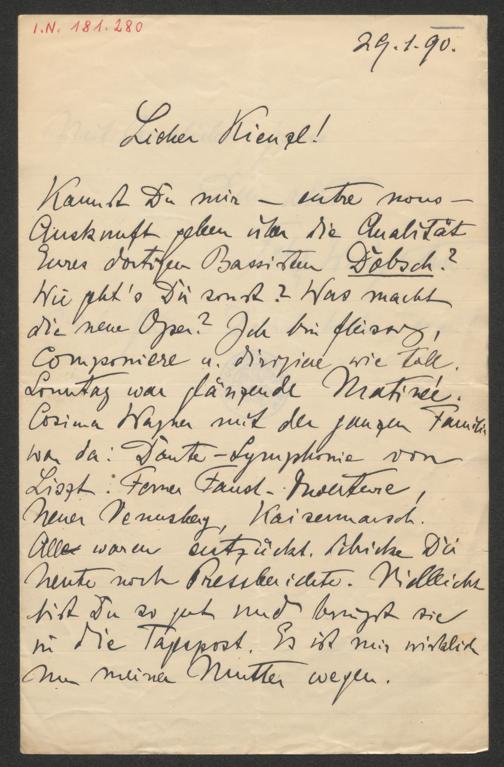 I.N. 181.280
29.1.90.
Lieber Kienzl!
Kannst Du mir – entre nous –
Auskunft geben über die Qualität
Eures dortigen Bassisten Döbsch?
Wie geht's Dir sonst? Was macht
die neue Oper? Ich bin fleissig,
componiere u. dirigiere wie toll.
Sonntag war glänzende Matinée.
Cosima Wagner mit der ganzen Familie
war da: Dante-Symphonie von
Liszt. Ferner Faust-Ouverture,
Neuer Venusberg, Kaisermarsch.
Alles waren entzückt. Schicke Dir
heute noch Pressberichte. Vielleicht
bist Du so gut und bringst sie
in die Tagespost. Es ist mir wirklich
nur meiner Mutter wegen.